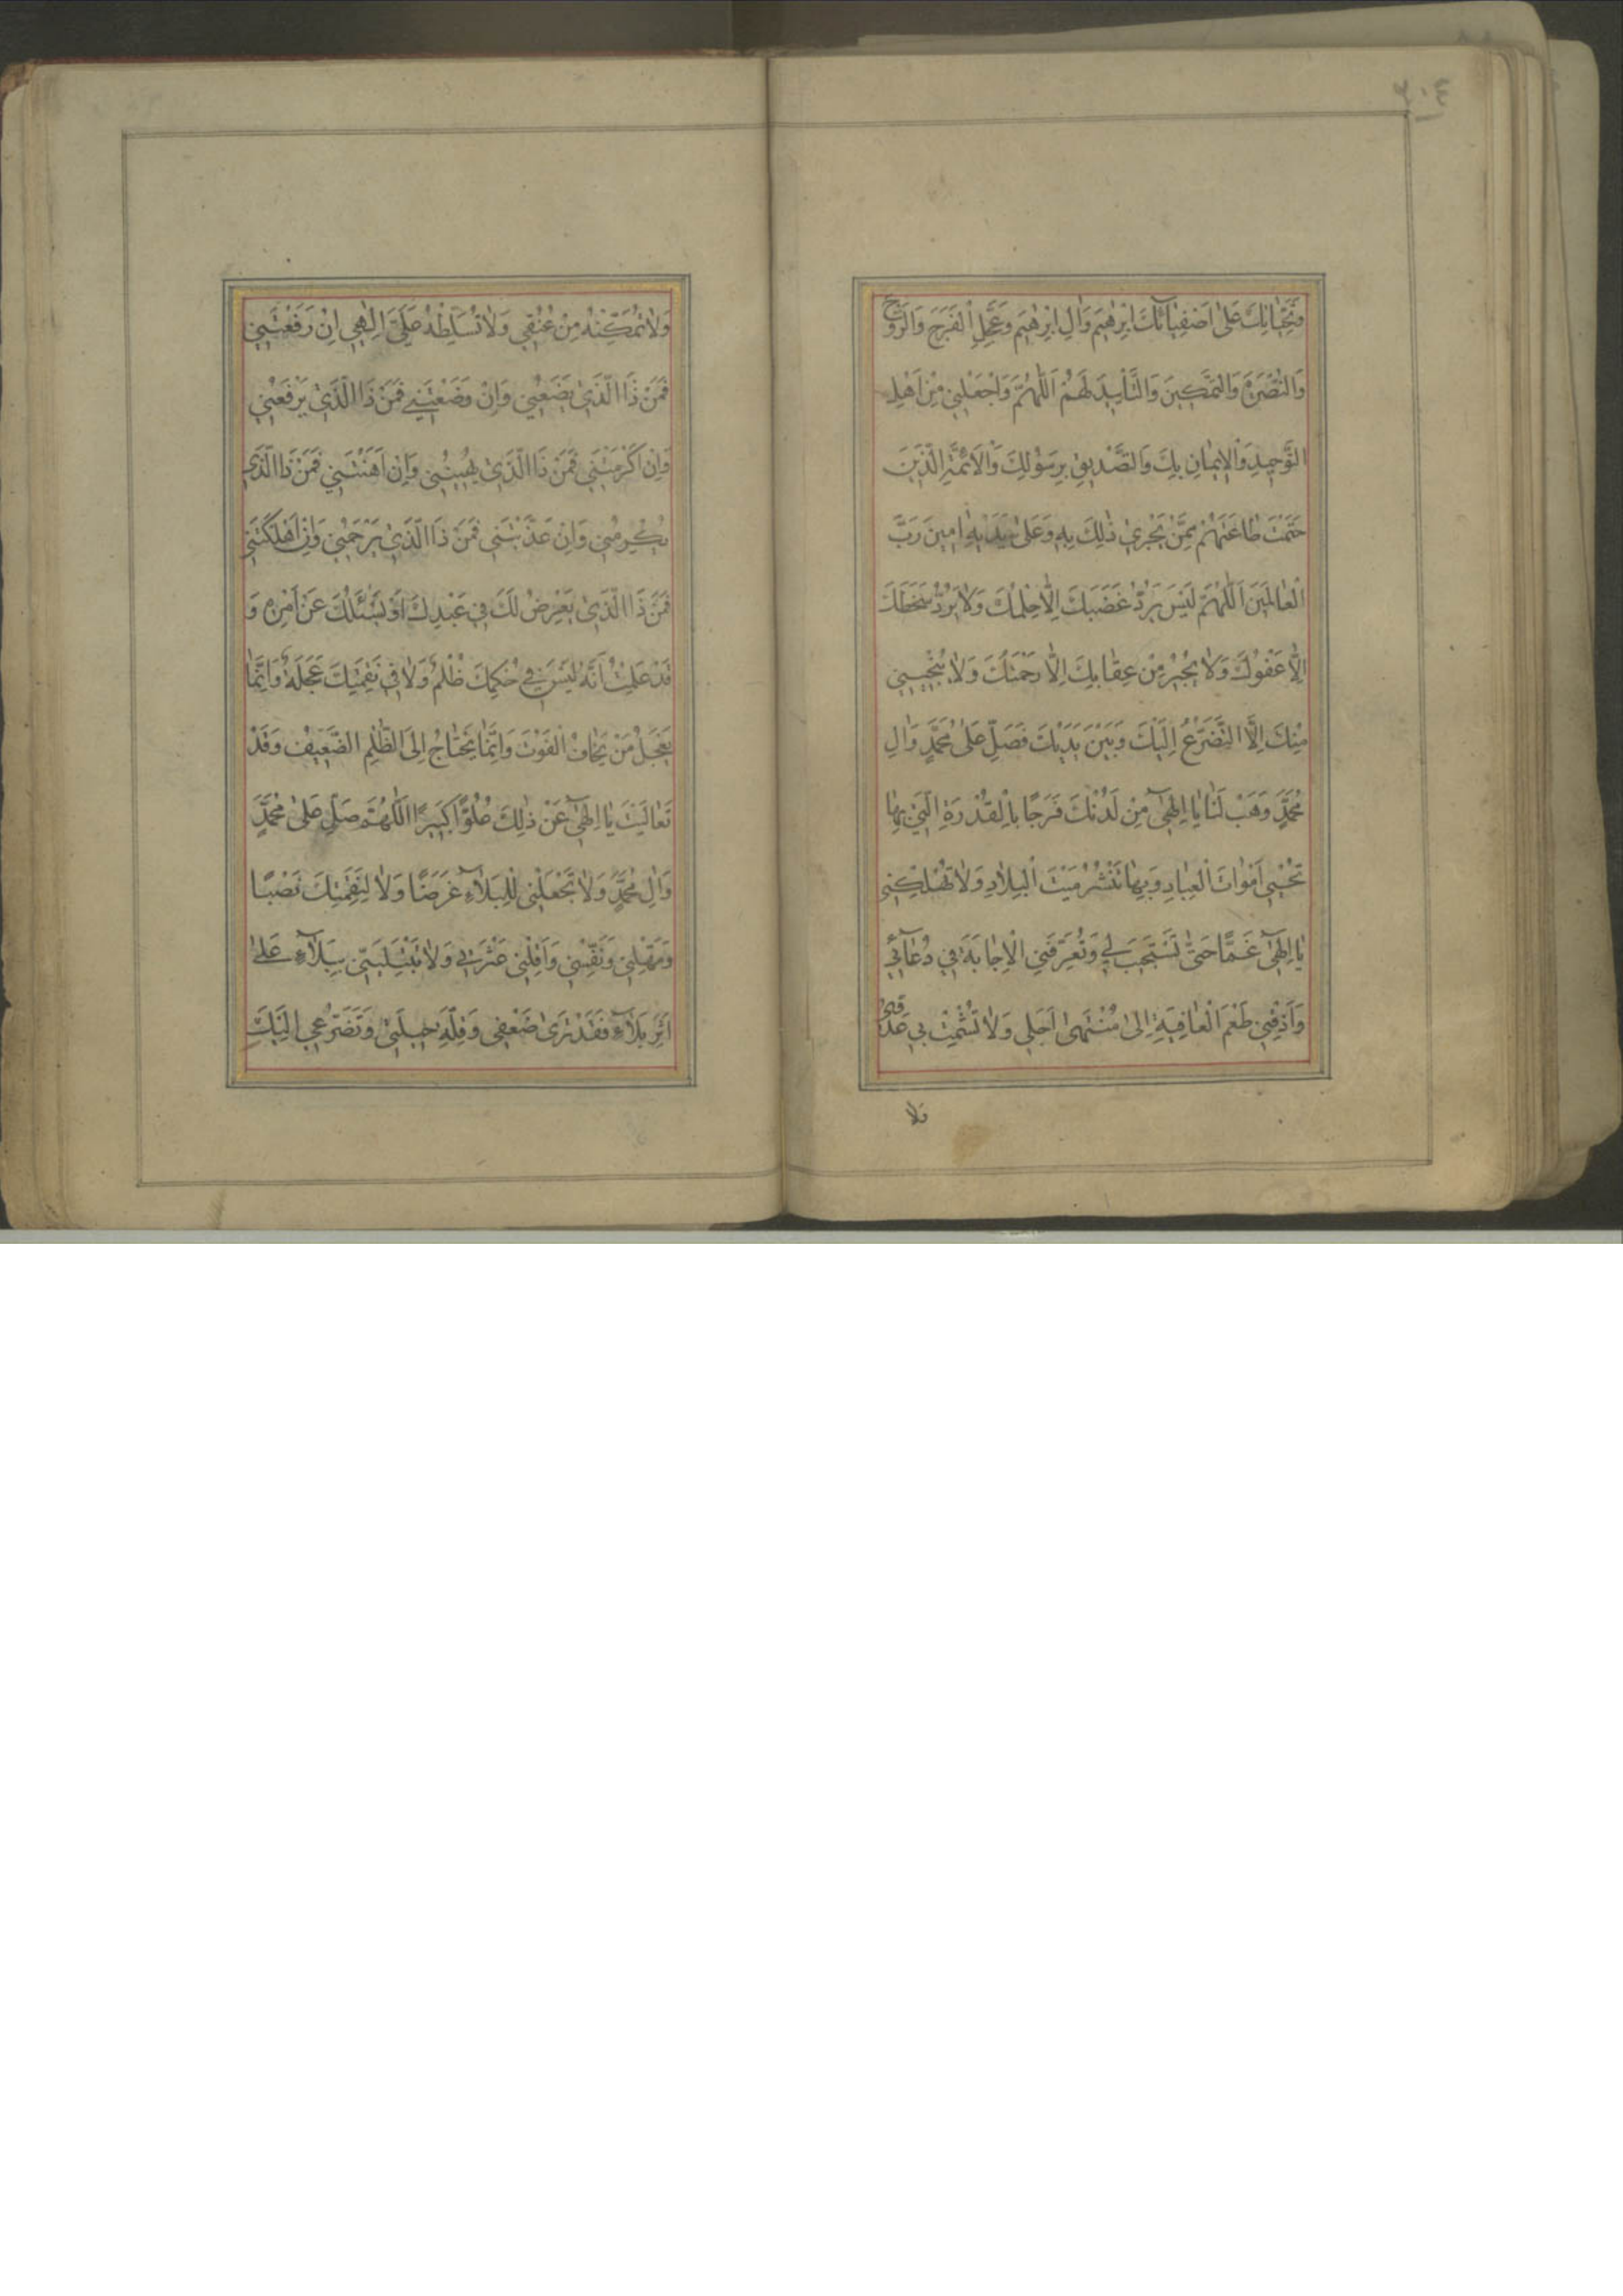 ٣٠٤
وَتَحِيَّاتِكَ عَلىٰ اَصْفِيٰآئِكَ اِبْرٰهيمَ وَاٰلِ اِبْرٰهيمَ وَعَجِّلِ الْفَرَجَ وَالرَّوْحَ
وَالنُّصْرَةَ وَالتَّمْكينَ وَالتَّأْييدَ لَهُمْ اَللّٰهُمَّ وَاجْعَلْني مِنْ اَهْلِ
التَّوْحيدِ وَالْايمٰانِ بِكَ وَالتَّصْديقِ بِرَسُولِكَ وَالْاَئِمَّةِ الَّذينَ
حَتَمْتَ طٰاعَتَهُمْ مِمَّنْ يَجْري ذٰلِكَ بِهِ وَعَلىٰ يَدَيْهِ اٰمينَ رَبَّ
الْعٰالَمينَ اَللّٰهُمَّ لَيْسَ يَرُدُّ غَضَبَكَ اِلّاٰ حِلْمُكَ وَلاٰ يَرُدُّ سَخَطَكَ
اِلّاٰ عَفْوُكَ وَلاٰ يُجيرُ مِنْ عِقٰابِكَ اِلّاٰ رَحْمَتُكَ وَلاٰ يُنْجيني
مِنْكَ اِلَّا التَّضَرُّعُ اِلَيْكَ وَبَيْنَ يَدَيْكَ فَصَلِّ عَلىٰ مُحَمَّدٍ وَاٰلِ
مُحَمَّدٍ وَهَبْ لَنٰا يٰا اِلٰهي مِنْ لَدُنْكَ فَرَجًا بِالْقُدْرَةِ الَّتي بِهٰا
تُحْيي اَمْوٰاتَ الْعِبٰادِ وَبِهٰا تَنْشُرُ مَيْتَ الْبِلاٰدِ وَلاٰ تُهْلِكْني
يٰا اِلٰهي غَمًّا حَتّىٰ تَسْتَجيبَ لي وَتُعَرِّفَنِي الْاِجٰابَةَ في دُعٰآئي
وَاَذِقْني طَعْمَ الْعٰافِيَةِ اِلىٰ مُنْتَهىٰ اَجَلي وَلاٰ تُشْمِتْ بي عَدُوّي
وَلاٰ
وَلاٰ تُمَكِّنْهُ مِنْ عُنُقي وَلاٰ تُسَلِّطْهُ عَلَيَّ اِلٰهي اِنْ رَفَعْتَني
فَمَنْ ذَا الَّذي يَضَعُني وَاِنْ وَضَعْتَني فَمَنْ ذَا الَّذي يَرْفَعُني
وَاِنْ اَكْرَمْتَني فَمَنْ ذَا الَّذي يُهينُني وَاِنْ اَهَنْتَني فَمَنْ ذَا الَّذي
يُكْرِمُني وَاِنْ عَذَّبْتَني فَمَنْ ذَا الَّذي يَرْحَمُني وَاِنْ اَهْلَكْتَني
فَمَنْ ذَا الَّذي يَعْرِضُ لَكَ في عَبْدِكَ اَوْ يَسْئَلُكَ عَنْ اَمْرِهِ وَ
قَدْ عَلِمْتُ اَنَّهُ لَيْسَ في حُكْمِكَ ظُلْمٌ وَلاٰ في نَقِمَتِكَ عَجَلَةٌ وَاِنَّمٰا
يَعْجَلُ مَنْ يَخٰافُ الْفَوْتَ وَاِنَّمٰا يَحْتٰاجُ اِلَى الظُّلْمِ الضَّعيفُ وَقَدْ
تَعٰالَيْتَ يٰا اِلٰهي عَنْ ذٰلِكَ عُلُوًّا كَبيرًا اَللّٰهُمَّ صَلِّ عَلىٰ مُحَمَّدٍ
وَاٰلِ مُحَمَّدٍ وَلاٰ تَجْعَلْني لِلْبَلاٰءِ غَرَضًا وَلاٰ لِنَقِمَتِكَ نَصْبًا
وَمَهِّلْني وَنَفِّسْني وَاَقِلْني عَثْرَتي وَلاٰ تَبْتَلِيَنّي بِبَلاٰءٍ عَلىٰ
اَثَرِ بَلاٰءٍ فَقَدْ تَرىٰ ضَعْفي وَقِلَّةَ حيلَتي وَتَضَرُّعي اِلَيْكَ